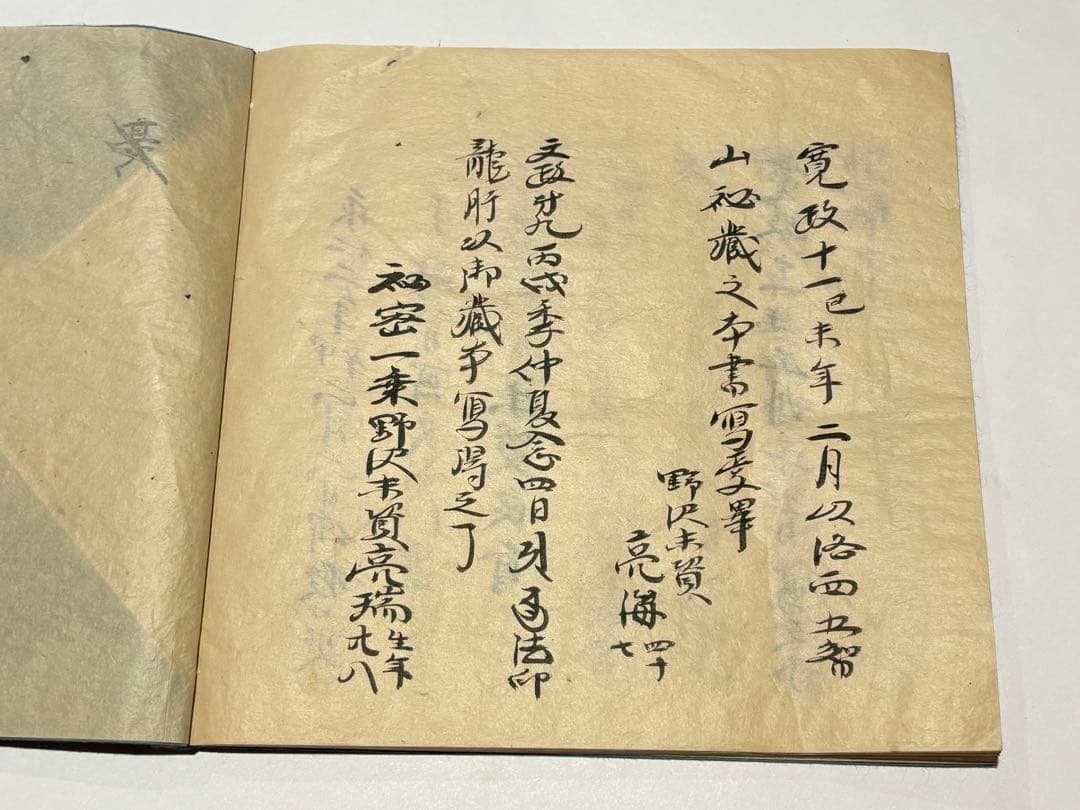 寛政十一己未年二月以洛西五智
山秘蔵之本書寫交畢
野沢末資
亮海四十七
文政九丙戌季仲夏念四日以法印
龍肝以御蔵本写得之了
秘密一乗野沢末資亮瑞生年廿八